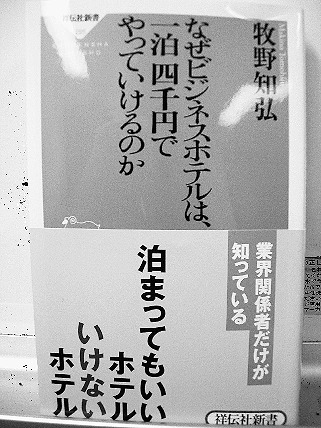 祥伝社新書
牧野知弘
Makino Tomohiro
なぜビジネスホテルは、
一泊四千円で
やっていけるのか
業界関係者だけが
知っている
泊まってもいい
ホテル
いけない
ホテル
祥伝社新書